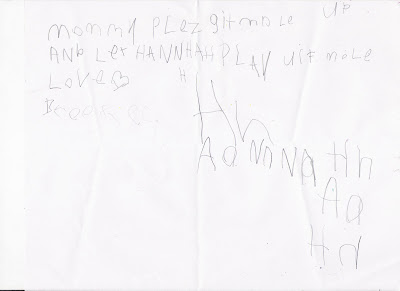 mommy PLez git mole UP
AND Let HANNAH PLAY wif mole
Love
H
Hh
Aa NnNa Hh
Aa
Hh